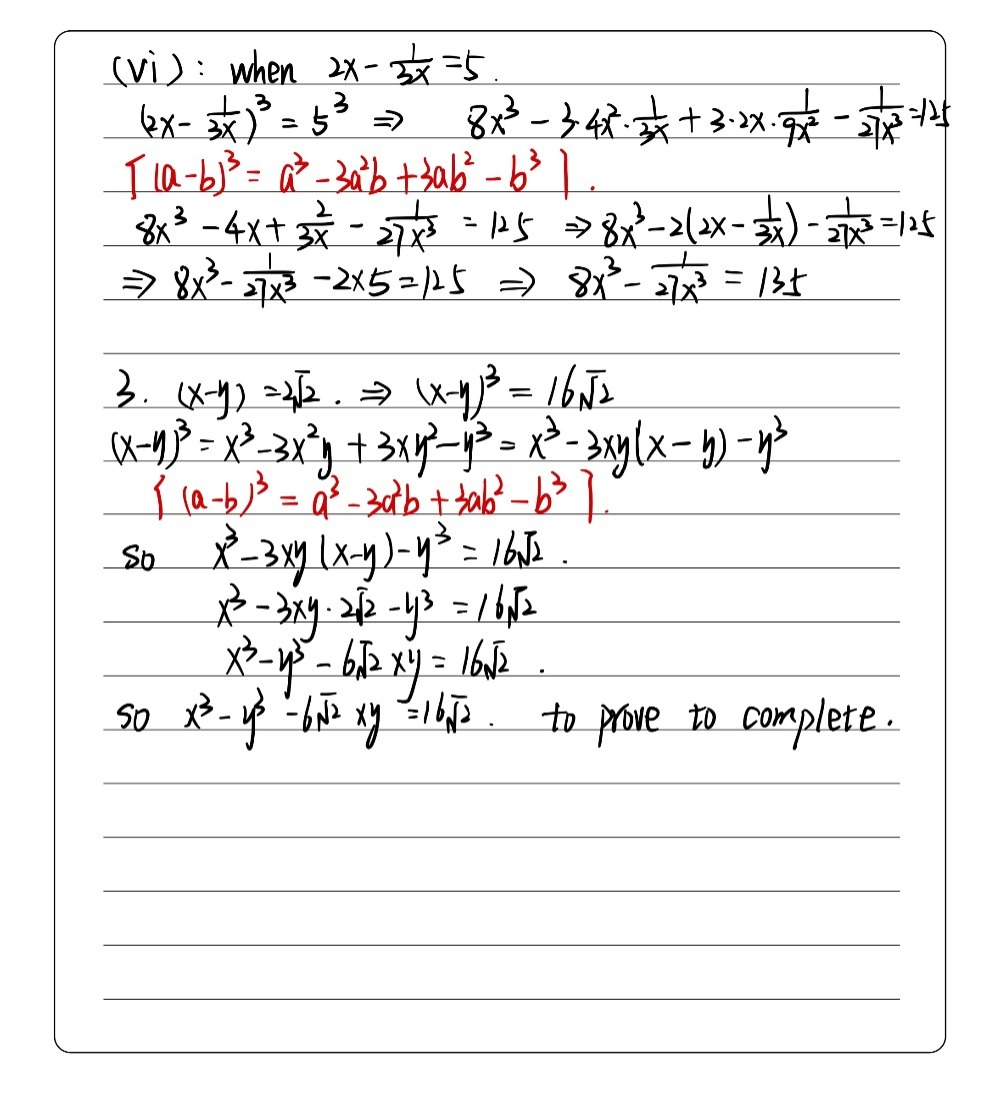 (vi): when 2x - 1/3x = 5.
(2x - 1/3x)³ = 5³ ⇒ 8x³ - 3·4x²·1/3x + 3·2x·1/9x² - 1/27x³ = 125
[(a-b)³ = a³ - 3a²b + 3ab² - b³].
8x³ - 4x + 2/3x - 1/27x³ = 125 ⇒ 8x³ - 2(2x - 1/3x) - 1/27x³ = 125
⇒ 8x³ - 1/27x³ - 2×5 = 125 ⇒ 8x³ - 1/27x³ = 135
3. (x-y) = 2√2. ⇒ (x-y)³ = 16√2
(x-y)³ = x³ - 3x²y + 3xy² - y³ = x³ - 3xy(x-y) - y³
[(a-b)³ = a³ - 3a²b + 3ab² - b³].
so x³ - 3xy(x-y) - y³ = 16√2.
x³ - 3xy·2√2 - y³ = 16√2
x³ - y³ - 6√2 xy = 16√2.
so x³ - y³ - 6√2 xy = 16√2. to prove to complete.